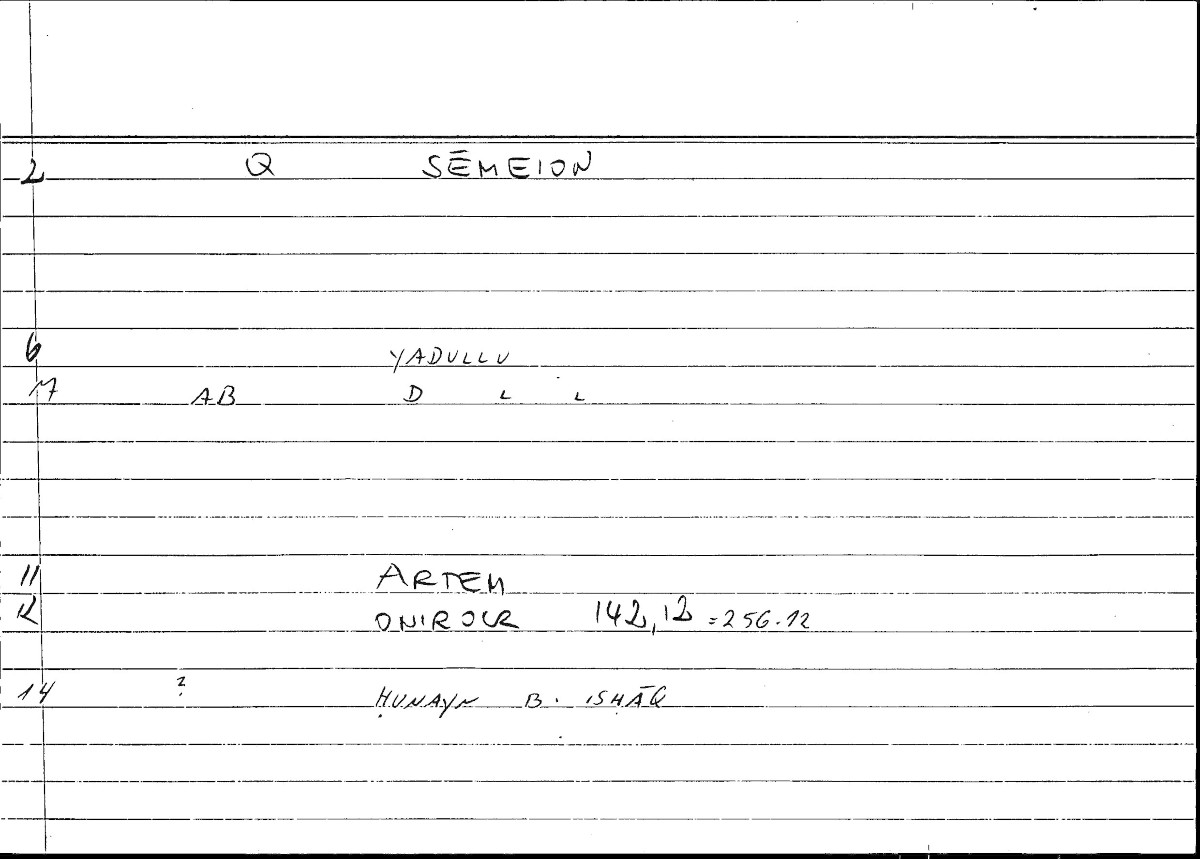 2 Q SĒMEION
6 YADULLU
7 AB D L L
11 ARTEM
12 ONIROCR 142,12 = 256.12
14 ? ḤUNAYN B. ISḤĀQ